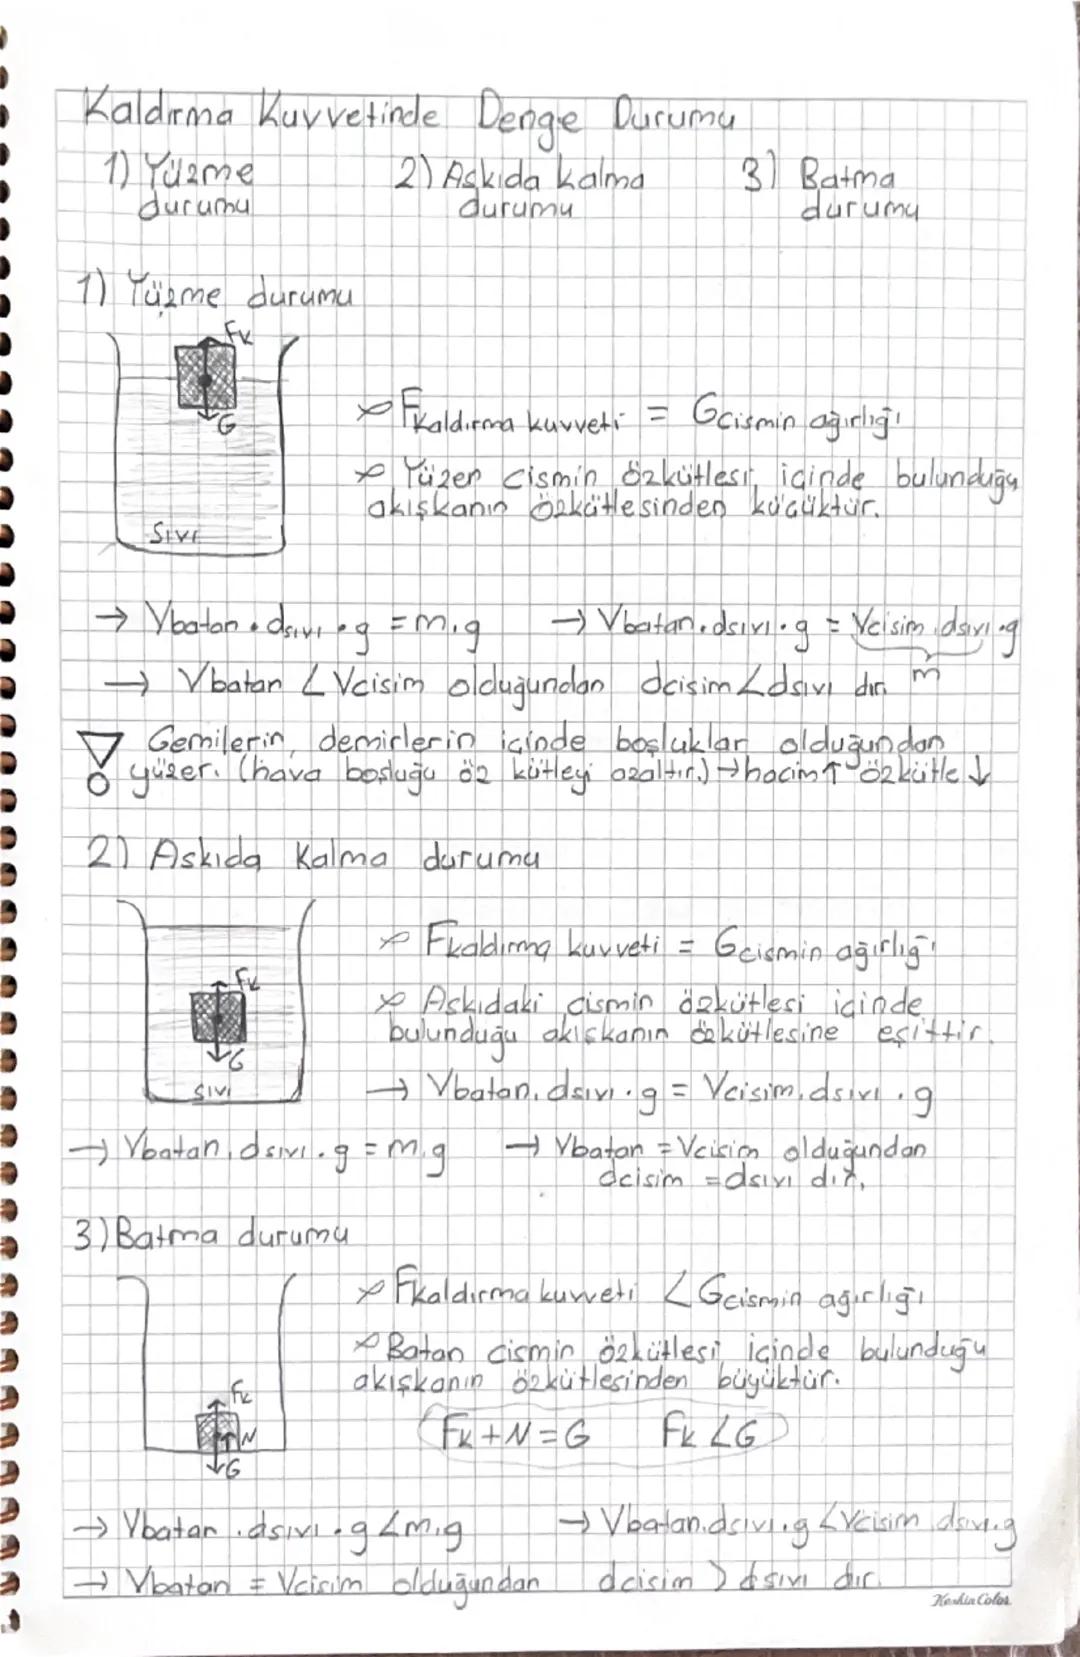 Kaldırma Kuvvetinde Denge Durumu
1) Yüzme durumu
2) Askıda kalma durumu
3) Batma durumu
1) Yüzme durumu
Fk
G
Sıvı
Fkaldırma kuvveti = Gcismin ağırlığı
Yüzen cismin özkütlesi, içinde bulunduğu
akışkanın özkütlesinden küçüktür.
→ Vbatan . dsıvı . g = m.g → Vbatan.dsıvı.g = Vcisim.dsıvı.g
m
→ Vbatan < Vcisim olduğundan dcisim < dsıvı dır.
Gemilerin, demirlerin içinde boşluklar olduğundan
yüzer. (hava boşluğu öz kütleyi azaltır.) → hacim↑ özkütle↓
2) Askıda Kalma durumu
Fk
G
SIVI
Fkaldırma kuvveti = Gcismin ağırlığı
Askıdaki cismin özkütlesi içinde
bulunduğu akışkanın özkütlesine eşittir.
→ Vbatan.dsıvı.g = Vcisim.dsıvı.g
→ Vbatan.dsıvı.g = m.g → Vbatan = Vcisim olduğundan
dcisim = dsıvı dır.
3) Batma durumu
Fk
N
G
Fkaldırma kuvveti < Gcismin ağırlığı
Batan cismin özkütlesi içinde bulunduğu
akışkanın özkütlesinden büyüktür.
Fk+N=G Fk<G
→ Vbatan.dsıvı.g < m.g → Vbatan.dsıvı.g < Vcisim.dsıvı.g
→ Vbatan = Vcisim olduğundan dcisim > dsıvı dır.
Keskin Color